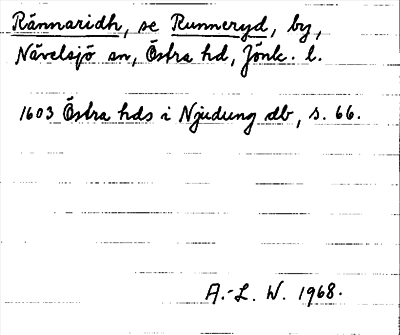 Rännaridh, se Runneryd, by,
Nävelsjö sn, Östra hd, Jönk. l.
1603 Östra hds i Njudung db, s. 66.
A.-L. W. 1968.